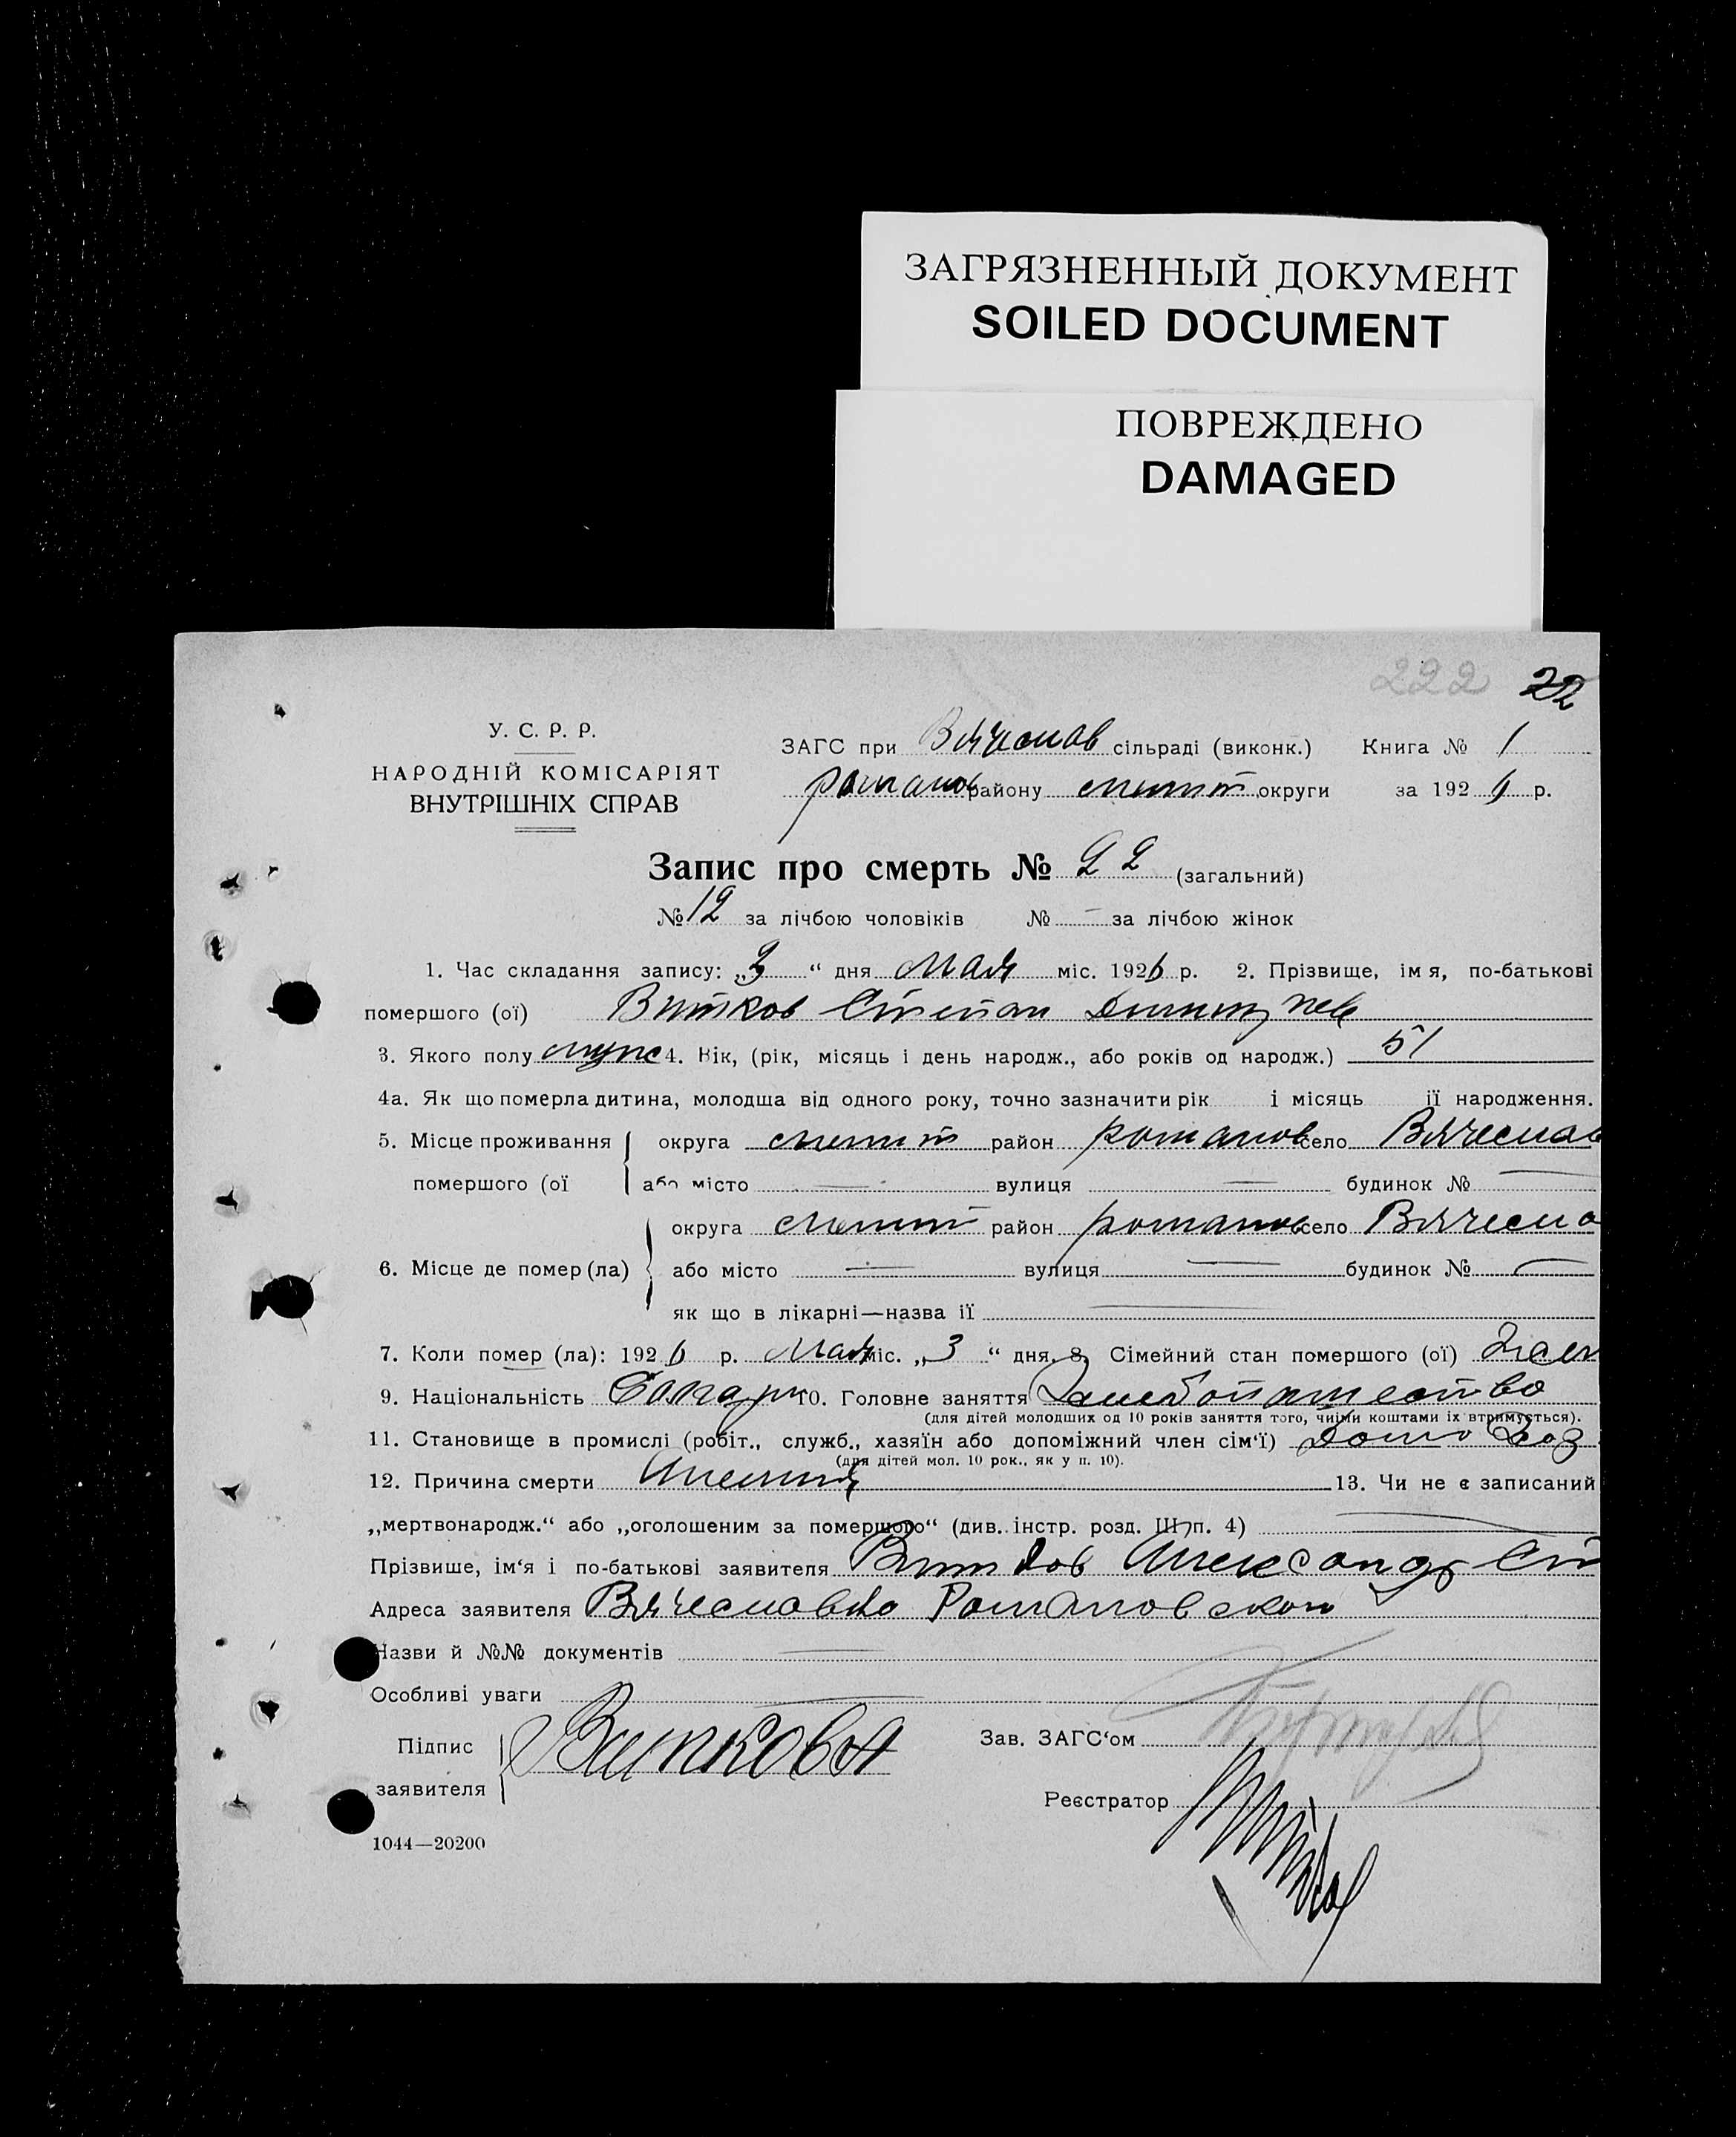 ЗАГРЯЗНЕННЫЙ ДОКУМЕНТ
SOILED DOCUMENT
ПОВРЕЖДЕНО
DAMAGED
222 22
У. С. Р. Р.
НАРОДНІЙ КОМІСАРІЯТ
ВНУТРІШНІХ СПРАВ
ЗАГС при Вячеслав сільраді (виконк.) Книга № 1
романов району мелит округи за 1926 р.
Запис про смерть № 22 (загальний)
№ 12 за лічбою чоловіків № — за лічбою жінок
1. Час складання запису: „3“ дня Мая міс. 1926 р. 2. Прізвище, імя, по-батькові
помершого (ої) Витков Степан
3. Якого полу муж 4. Вік, (рік, місяць і день народж., або років од народж.) 51
4а. Як що померла дитина, молодша від одного року, точно зазначити рік і місяць її народження.
5. Місце проживання помершого (ої округа мелит район романов село Вячеслав
або місто — вулиця — будинок № —
6. Місце де помер (ла) округа мелит район романов село Вячесла
або місто — вулиця — будинок № —
як що в лікарні—назва її —
7. Коли помер (ла): 1926 р. Мая міс. „3“ дня. 8. Сімейний стан помершого (ої)
9. Національність Болгар 10. Головне заняття Хлебопашество
(для дітей молодших од 10 років заняття того, чиїми коштами їх втримується).
11. Становище в промислі (робіт., служб., хазяїн або допоміжний член сім‘ї) Домо Хоз
(для дітей мол. 10 рок., як у п. 10).
12. Причина смерти 13. Чи не є записаний
„мертвонародж.“ або „оголошеним за помершого“ (див. інстр. розд. III п. 4) —
Прізвише, ім‘я і по-батькові заявителя Витков Александр Ст
Адреса заявителя Вячеславка Романовского
Назви й №№ документів —
Особливі уваги —
Підпис заявителя Виткова
Зав. ЗАГС‘ом
Реєстратор
1044—20200